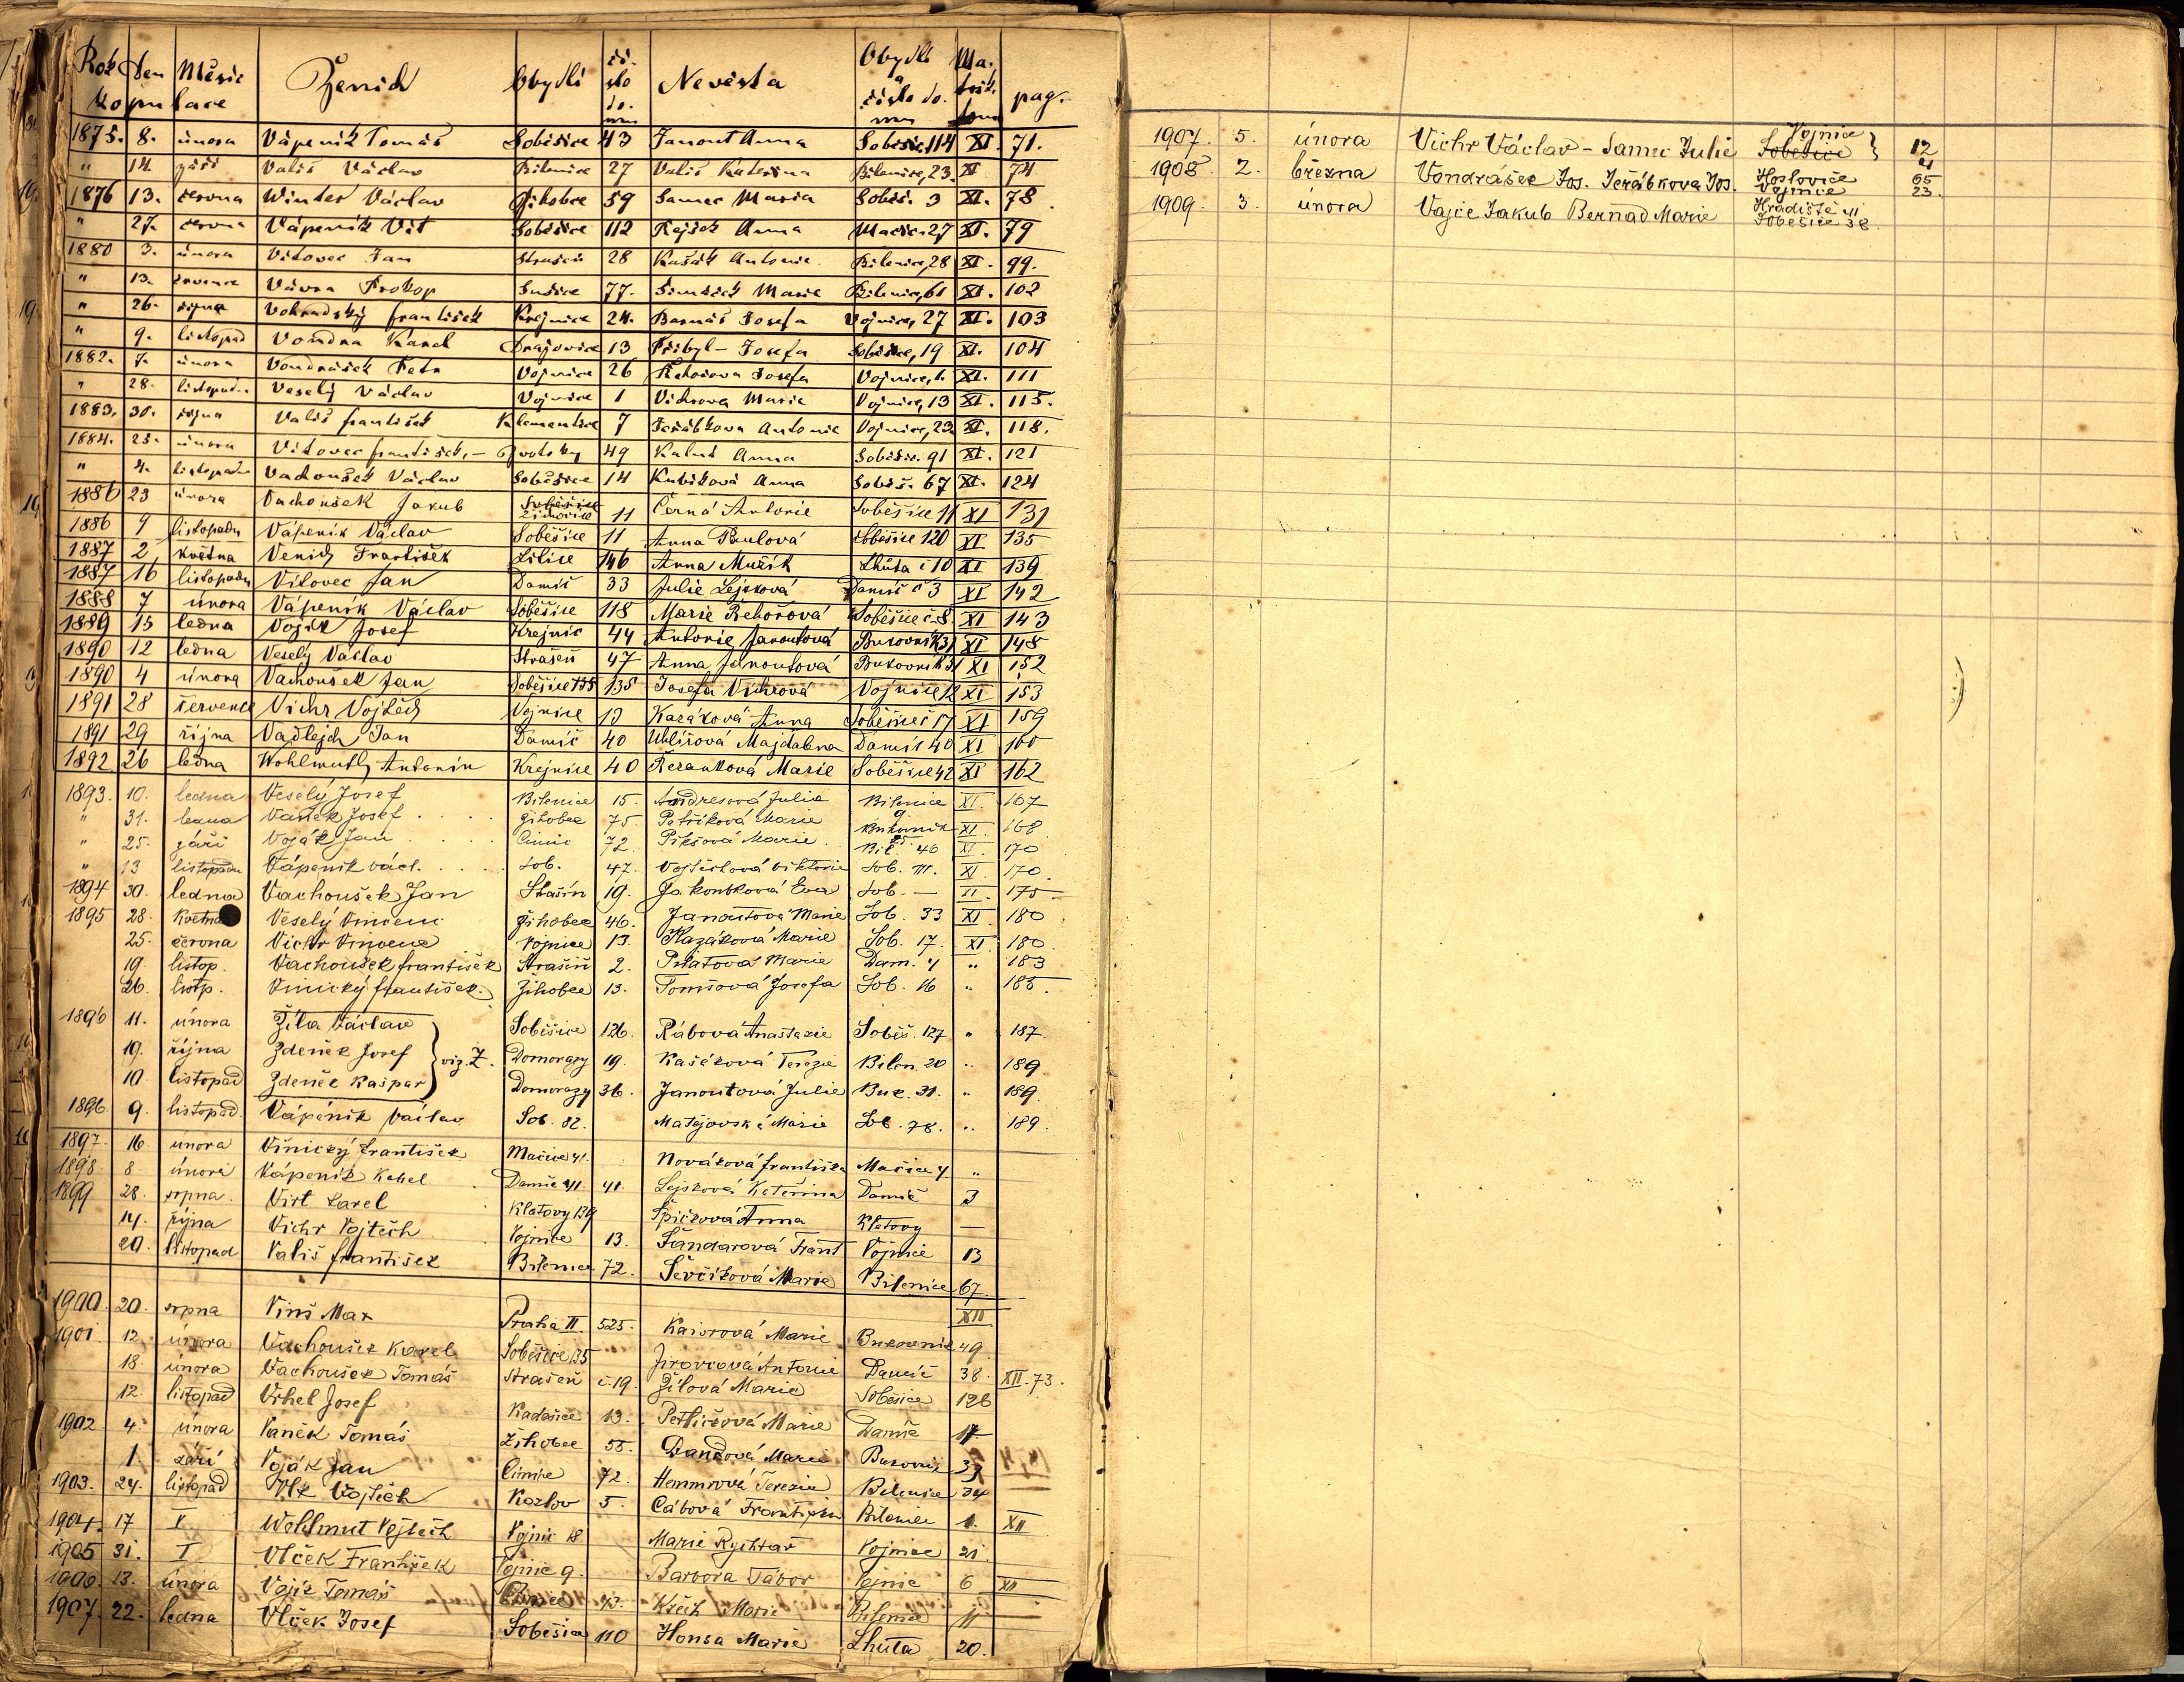 Rok Den Měsíc Ženich Obydlí čí- Nevěsta Obydlí Ma- pag.
kopulace slo do- mu a číslo do- mu trik. tom
1875. 8. února Vápeník Tomáš Soběšice 43 Janout Anna Soběšic. 114 XI. 71.
" 14. září Vališ Václav Bilenice 27 Vališ Kateřina Bilenice, 23. XI. 74
1876 13. června Winter Václav Žihobce 59 Samec Maria Soběš. 3 XI. 78
" 27. června Vápeník Vít Soběšice 112 Rejšek Anna Mačice 27 XI. 79
1880 3. února Vítovec Jan Strašeň 28 Kašák Antonie Bilenice, 28 XI. 99.
" 13. července Vávra Prokop Sušice 77. Šimáček Marie Bilenice, 61 XI. 102
" 26. října Vohradský František Krejnice 24. Barnáš Josefa Vojnice, 27 XI. 103
" 9. listopad Vondra Karel Drajovice 13 Přibyl - Josefa Soběšice, 19 XI. 104
1882. 7. února Vondrášek Petr Vojnice 26 Řehořova Josefa Vojnice, 1. XI. 111
" 28. listopadu Veselý Václav Vojnice 1 Vichrova Marie Vojnice, 13 XI. 115.
1883. 30. října Vališ František Klementice 7 Jeřábkova Antonie Vojnice, 23. XI. 118.
1884. 25. února Vítovec František, - 49 Kalná Anna Soběšic. 91 XI. 121
" 4. listopadu Vachoušek Václav Soběšice 14 Kubíková Anna Soběš. 67 XI. 124
1886 23 února Vachoušek Jakub Soběšice Žichovice 11 Černá Antonie Soběšice 11 XI 131
1886 9 listopadu Vápeník Václav Soběšice 11 Anna Paulová Soběšice 120 XI 135
1887 2 května Venich František Žilice 146 Anna Mužík Lhůta č 10 XI 139
1887 16 listopadu Vítovec Jan Damíč 33 Julie Lejsková Damíč č 3 XI 142
1888 7 února Vápeník Václav Soběšice 118 Marie Řehořová Soběšice č. 8 XI 143
1889 15 ledna Voják Josef Krejnic 44 Antonie Janoutová Bukovník 31 XI 148
1890 12 ledna Veselý Václav Strašeň 47 Anna Janoutová Bukovník 31 XI 152
1890 4 února Vachoušek Jan Soběšice 135 135 Josefa Vichrová Vojnice 12 XI 153
1891 28 července Vichr Vojtěch Vojnice 13 Kazáková Anna Soběšice č 17 XI 159
1891 29 října Vadlejch Jan Damíč 40 Uhlířová Majdalena Damíč 40 XI 160
1892 26 ledna Wohlmuth Antonín Krejnice 40 Řezanková Marie Soběšice 42 XI 162
1893. 10. ledna Veselý Josef Bilenice 15. Andresová Julie Bilenice 9. XI. 167
" 31. ledna Vaněk Josef . . . . Žihobce 75. Petříková Marie Bukovník XI. 168
" 25. září Voják Jan . . . . Čimic 72. Pikšová Marie Bil. 46 XI. 170
" 13 listopadu Vápeník Václ. . . . . Sob. 47. Vojtíšková Viktorie Sob. 111. XI. 170.
1894 30. ledna Vachoušek Jan Strašín 19. Jakoubková Eva Sob. — XI. 175
1895 28. května Veselý Vincenc Žihobce 46. Janoutová Marie Sob. 33 XI. 180
25. června Vichr Vincenc Vojnice 13. Kazáková Marie Sob. 17. XI. 180
19 listop. Vachoušek František Strašiň 2. Pilatová Marie Dam. 4 " 183
26. listp. Vinický František. Žihobce 13. Tomšová Josefa Sob. 16 " 185.
1896 11. února Žila Václav Soběšice 126. Rábová Anastazie Soběš. 127 " 187.
19. října Zdeněk Josef } viz. Z. Domorazy 19. Kašáková Terezie Bilen. 20 " 189
10 listopad Zdeněk Kašpar Domorazy 36. Janoutová Julie Buk. 31. " 189.
1896 9. listopad. Vápeník Václav Sob. 82. Matějovská Marie Sob. 78. " 189.
1897. 16 února Višnický František Mačice 41. Nováková Františka Mačice 4. "
1898. 8 února Vápeník Karel Damíč 41. 41. Lejsková Kateřina Damíč 3
1899 28. srpna. Virt Karel Klatovy 139 Špičková Anna Klatovy —
14. října Vichr Vojtěch Vojnice 13. Šandarová Frant Vojnice 13
20. listopad Vališ František Bilenice 72. Ševčíková Marie Bilenice 67.
1900. 20. srpna Vinš Max Praha II. 525. Kaisrová Marie Bukovník 49 XII
1901. 12. února Vachoušek Karel Soběšice 135 Jirovcová Antonie Damíč 38.
18. února Vachoušek Tomáš Strašeň č. 19. Žílová Marie Soběšice 126 XII. 73.
12. listopad Vrhel Josef Kadešice 13. Petličková Marie Damíč 17
1902 4. února Vaněk Tomáš Žihobce 55. Dandová Marie Bukovník 33
1 září Voják Jan Čimice 72. Hemmrová Terezie Bilenice 24
1903. 24. listopad Vlk Vojtěch Kozlov 5. Cábová Františka Bilenice 1. XII
1904. 17 V Wohlmut Vojtěch Vojnic 18 Marie Rychtář Vojnice 21.
1905 31. I Vlček František Vojnic 9. Barbora Tábor Vojnice 6 XII
1906. 13. února Vojík Tomáš Krčil Marie Bilenice 11
1907. 22. ledna Vlček Josef Soběšice 110 Honsa Marie Lhůta 20.
1907. 5. února Vichr Václav - Samec Julie Vojnice Soběšice } 12 4
1908. 2. března Vondrášek Jos. Jeřábkova Jos. Hoslovice Vojnice 65 23.
1909. 3. února Vajce Jakub Bernad Marie Hradiště 41 Soběšice 38.